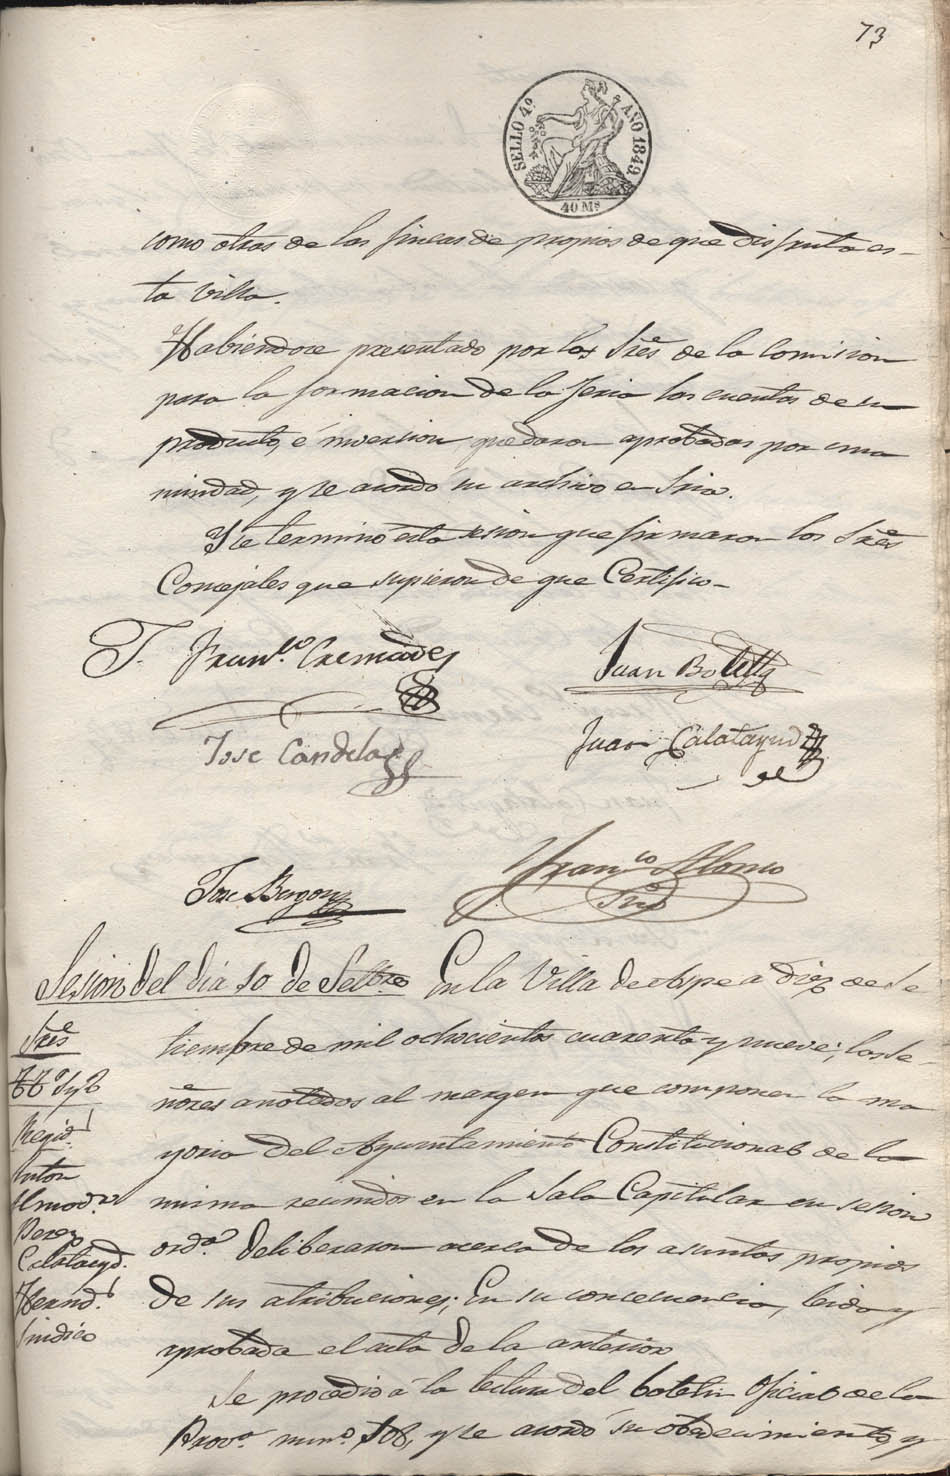 73
SELLO 4º AÑO 1849
40 Ms
como otras de las fincas de propios de que disfruta es-
ta Villa.
Habiendose presentado por los Sres de la Comision
para la formacion de la feria las cuentas de su
producto, é inversion, quedaron aprobadas por una
nimidad, y se acordó su archivo en Sria.
Y se terminó esta sesion que firmaron los Sres
Concejales que supieron de que Certifico-
Franco Cremades
Juan Botella
Jose Candela
Juan Calatayud
Jose Burgos
Franco Alonso
Srio
Sesion del dia 10 de Setbre En la Villa de Aspe a diez de Se
Sres
tiembre de mil ochocientos cuarenta y nueve; los Se-
ñores anotados al margen que componen la ma
Regid
yoria del Ayuntamiento Constitucional de la
misma reunidos en la Sala Capitular en sesion
Almodr
Perez
orda deliberaron acerca de los asuntos propios
Calatayd.
de sus atribuciones; En su consecuencia, leida y
Hernd
Sindico
aprobada el acta de la anterior
Se procedió á la lectura del boletin Oficial de la
Prova numo 108, y se acordó su obedecimiento, y